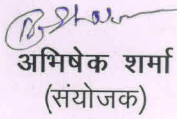 अभिषेक शर्मा
(संयोजक)